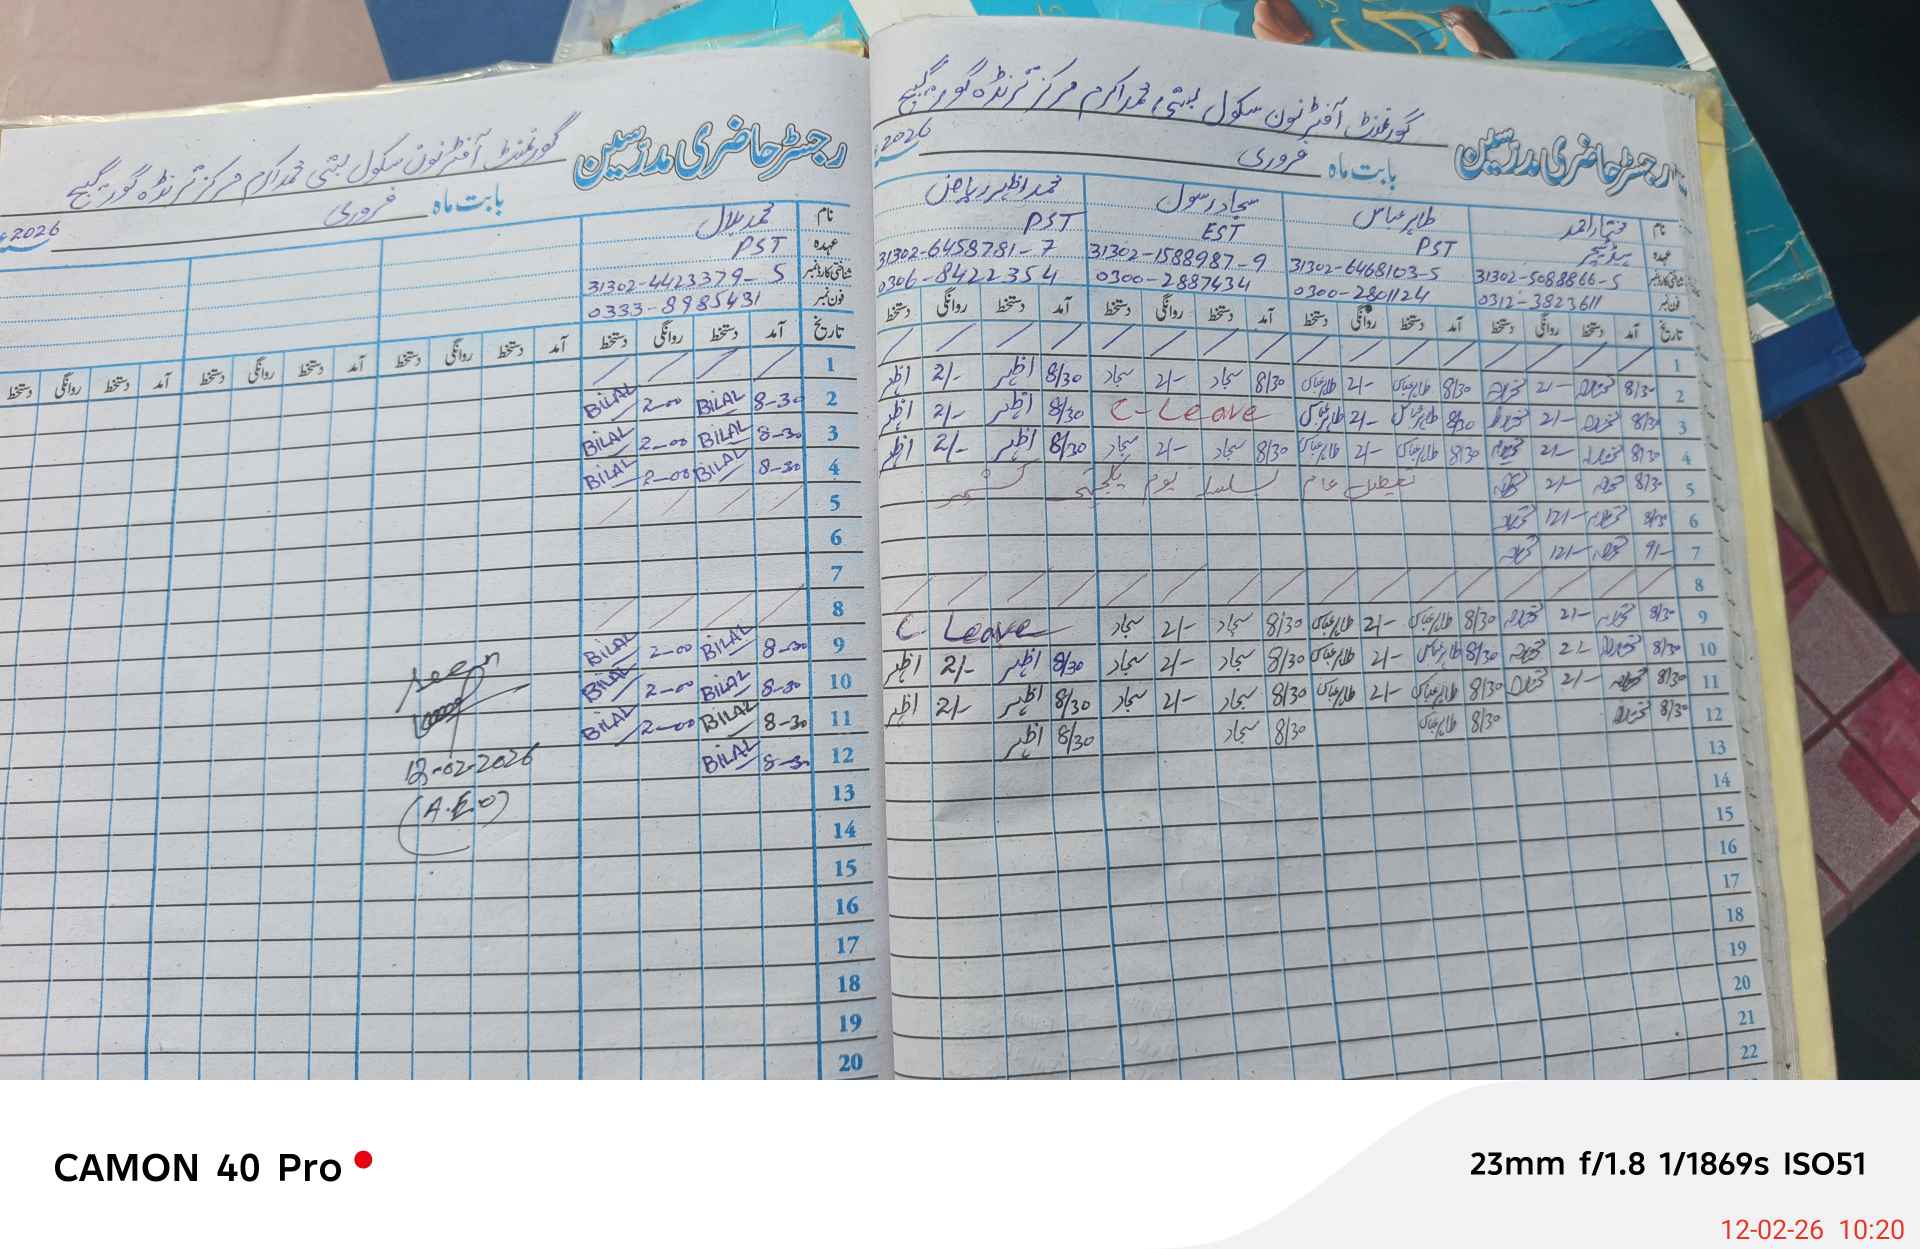 گورنمنٹ آفٹر نون سکول بستی محمد اکرم مرکز ترنڈہ گورگیج
رجسٹر حاضری مدرسین
بابت ماہ فروری 2026
نام محمد بلال
عہدہ PST
شناختی کارڈ نمبر 31302-4423379-5
فون نمبر 0333-8985431
تاریخ آمد دستخط روانگی دستخط آمد دستخط روانگی دستخط آمد دستخط روانگی دستخط آمد دستخط روانگی دستخط
1
2 8-30 BILAL 2-00 BILAL
3 8-30 BILAL 2-00 BILAL
4 8-30 BILAL 2-00 BILAL
5
6
7
8
9 8-30 BILAL 2-00 BILAL
10 8-30 BILAL 2-00 BILAL
11 8-30 BILAL 2-00 BILAL
12 8-30 BILAL
13
14
15
16
17
18
19
20
Seen
12-02-2026
(A.E.O)
گورنمنٹ آفٹر نون سکول بستی محمد اکرم مرکز ترنڈہ گورگیج
رجسٹر حاضری مدرسین
بابت ماہ فروری 2026
نام مختار احمد طاہر عباس سجاد رسول محمد اظہر ریاض
عہدہ ہیڈ ٹیچر PST EST PST
شناختی کارڈ نمبر 31302-5088866-5 31302-6468103-5 31302-1588987-9 31302-6458781-7
فون نمبر 0312-3823611 0300-2801124 0300-2887434 0306-8422354
تاریخ آمد دستخط روانگی دستخط آمد دستخط روانگی دستخط آمد دستخط روانگی دستخط آمد دستخط روانگی دستخط
1
2 8/30 2/- 8/30 طاہر عباس 2/- طاہر عباس 8/30 سجاد 2/- سجاد 8/30 اظہر 2/- اظہر
3 8/30 2/- 8/30 طاہر عباس 2/- طاہر عباس C-Leave 8/30 اظہر 2/- اظہر
4 8/30 2/- 8/30 طاہر عباس 2/- طاہر عباس 8/30 سجاد 2/- سجاد 8/30 اظہر 2/- اظہر
5 8/30 2/- تعطیل عام بسلسلہ یوم یکجہتی کشمیر
6 8/30 12/-
7 9/- 12/-
8
9 8/30 2/- 8/30 طاہر عباس 2/- طاہر عباس 8/30 سجاد 2/- سجاد C-Leave
10 8/30 8/30 طاہر عباس 2/- طاہر عباس 8/30 سجاد 2/- سجاد 8/30 اظہر 2/- اظہر
11 8/30 2/- 8/30 طاہر عباس 2/- طاہر عباس 8/30 سجاد 2/- سجاد 8/30 اظہر 2/- اظہر
12 8/30 8/30 طاہر عباس 8/30 سجاد 8/30 اظہر
13
14
15
16
17
18
19
20
21
22
CAMON 40 Pro
23mm f/1.8 1/1869s ISO51
12-02-26 10:20